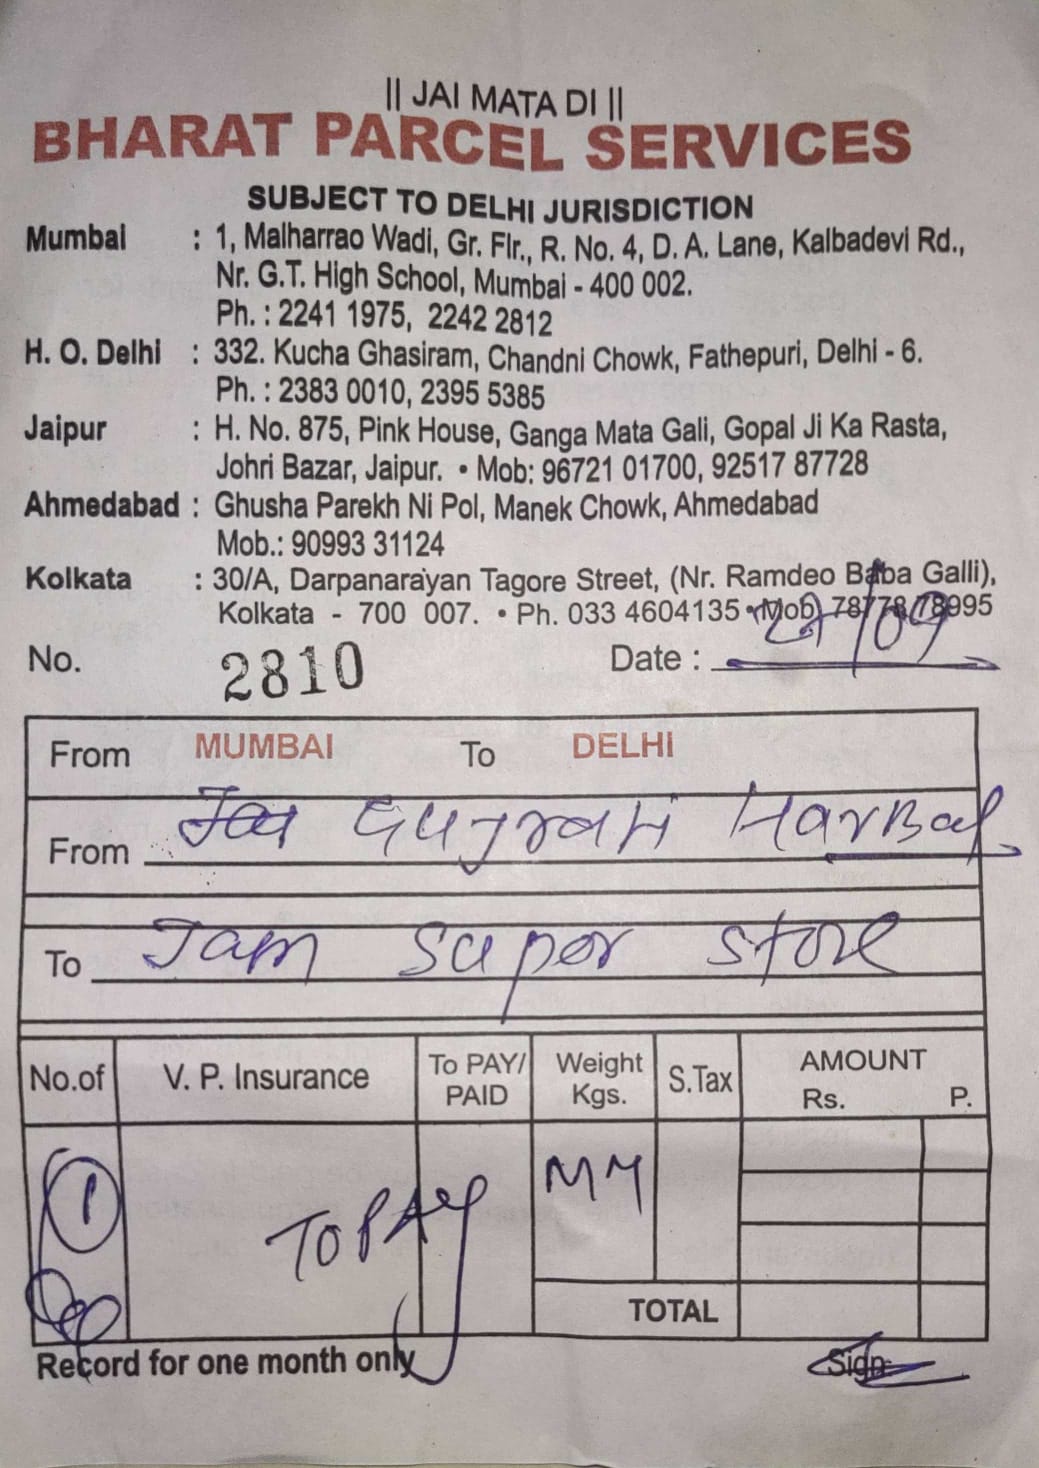 || JAI MATA DI ||
BHARAT PARCEL SERVICES
SUBJECT TO DELHI JURISDICTION
Mumbai : 1, Malharrao Wadi, Gr. Flr., R. No. 4, D. A. Lane, Kalbadevi Rd.,
Nr. G.T. High School, Mumbai - 400 002.
Ph. : 2241 1975, 2242 2812
H. O. Delhi : 332. Kucha Ghasiram, Chandni Chowk, Fathepuri, Delhi - 6.
Ph. : 2383 0010, 2395 5385
Jaipur : H. No. 875, Pink House, Ganga Mata Gali, Gopal Ji Ka Rasta,
Johri Bazar, Jaipur. • Mob: 96721 01700, 92517 87728
Ahmedabad : Ghusha Parekh Ni Pol, Manek Chowk, Ahmedabad
Mob.: 90993 31124
Kolkata : 30/A, Darpanarayan Tagore Street, (Nr. Ramdeo Baba Galli),
Kolkata - 700 007. • Ph. 033 4604135 • Mob) 78778 78995
No. 2810 Date : 27/09
From MUMBAI To DELHI
From Jai Gujrati Harbal
To Jam Super Store
No.of V. P. Insurance To PAY/ PAID Weight Kgs. S.Tax AMOUNT Rs. P.
1 TO PAY
TOTAL
Record for one month only Sign